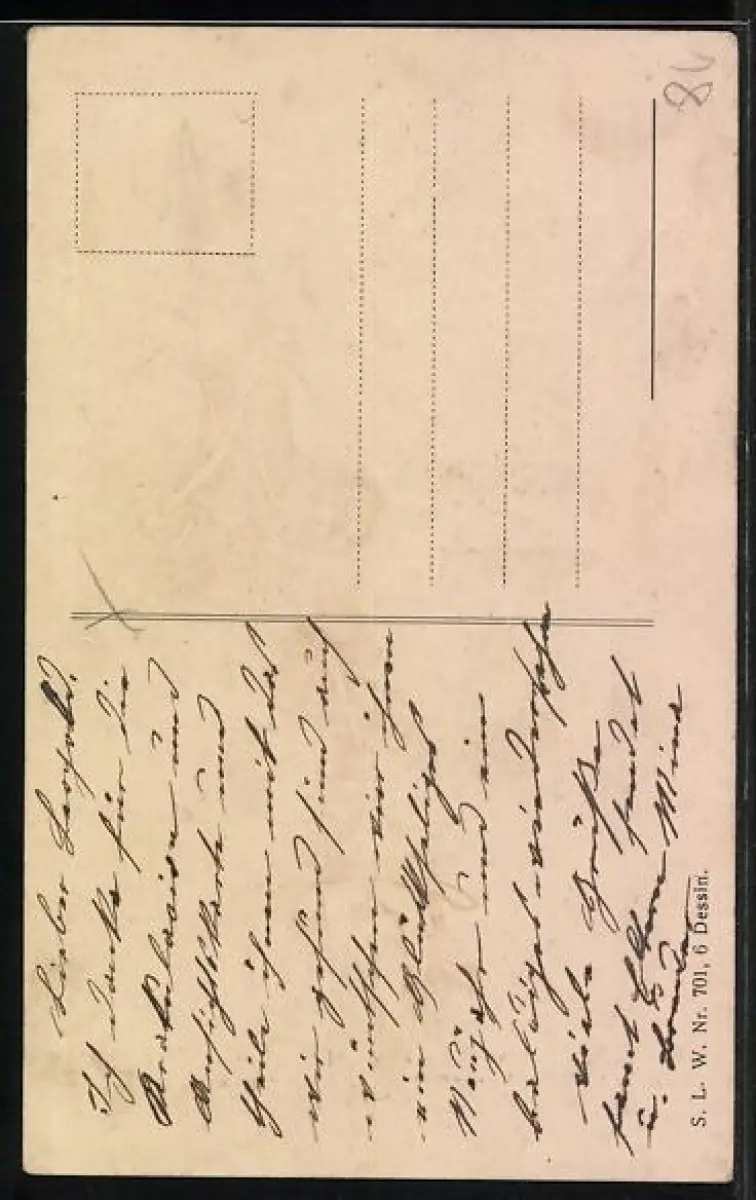 Lieber Leopold.
Ich danke für die
Gratulation und
Ansichtskarte und
theile ihnen mit das
wir gesund sind auch
wünschen wir ihnen
ein Glückseliges
Neujahr und ein
baldiges wiedersehen
Viele Grüße
sendet
u. Mina
S. L. W. Nr. 701, 6 Dessin.
86